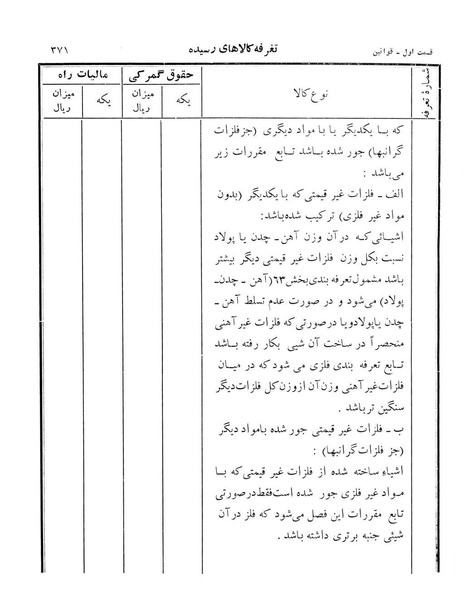 قسمت اول ـ قوانین
تعرفه کالاهای رسیده
۳۷۱
شمارهٔ تعرفه
نوع کالا
حقوق گمرکی
مالیات راه
یکه
میزان ریال
یکه
میزان ریال
که بـا یکدیگر یـا بـا مواد دیگری (جزفلزات
گرانبها) جور شده بـاشد تـابع مقررات زیر
می‌باشد :
الف ـ فلزات غیر قیمتی‌که با یکدیگر (بدون
مواد غیر فلزی) ترکیب شده‌باشد:
اشیائی‌کـه در آن وزن آهن ـ چدن یا پولاد
نسبت بکل وزن فلزات غیر قیمتی دیگر بیشتر
باشد مشمول‌تعرفه بندی‌بخش۶۳(آهن ـ چدن‌ـ
پولاد) می‌شود و در صورت عدم تسلط آهن ـ
چدن یاپولادویا درصورتی‌که فلزات غیرآهنی
منحصراً در ساخت آن شیی بکار رفته بـاشد
تـابع تعرفه بندی فلزی می‌شود که در میـان
فلزات‌غیرآهنی وزن‌آن ازوزن‌کل فلزات‌دیگر
سنگین تر باشد .
ب ـ فلزات غیر قیمتی جور شده بامواد دیگر
(جز فلزات‌گرانبها) :
اشیاء ساخته شده از فلزات غیر قیمتی‌که بـا
مـواد غیر فلزی جور شده است‌فقط‌درصورتی
تابع مقررات این فصل می‌شود که فلز در آن
شیئی جنبه برتری داشته باشد .